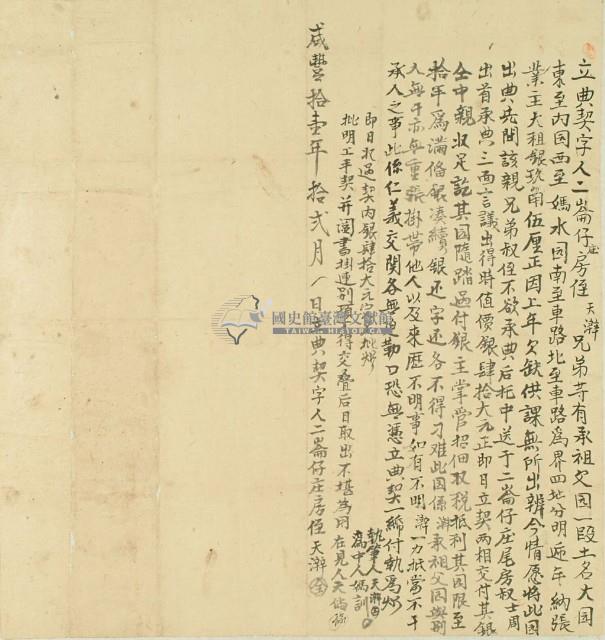 立典契字人二崙仔庄房侄天澣兄弟等有承祖父园一段土名大园
東至內园西至媽水园南至車路北至車路為界四址分明逓年納張
業主大租銀玖角伍厘正因上年欠缺供課無所出辦今情愿將此园
出典先問該親兄弟叔侄不欲承典后托中送于二崙仔庄尾房叔士周
出首承典三面言議出得時值價銀肆拾大元正即日立契兩相交付其銀
仝中親收足訖其园隨踏過付銀主掌管招佃收稅抵利其园限至
拾年為滿俻銀湊續銀还字还各不得刁难此园係澣承祖父园與別
人無干亦無重張掛帶他人以及來歷不明事如有不明澣一力抵當不干
承人之事此係仁義交関各無迫勒口恐無憑立典契一紙付執為炤
即日收過契內銀肆拾大元字批炤
批明上手契并鬮書掛連別項不得交叠后日取出不堪為用
執筆人天澣
為中人媽訓
在見人天
咸豐拾壹年拾弍月 日立典契字人二崙仔庄房侄天澣
國史館臺灣文獻館
TAIWAN HISTORICA